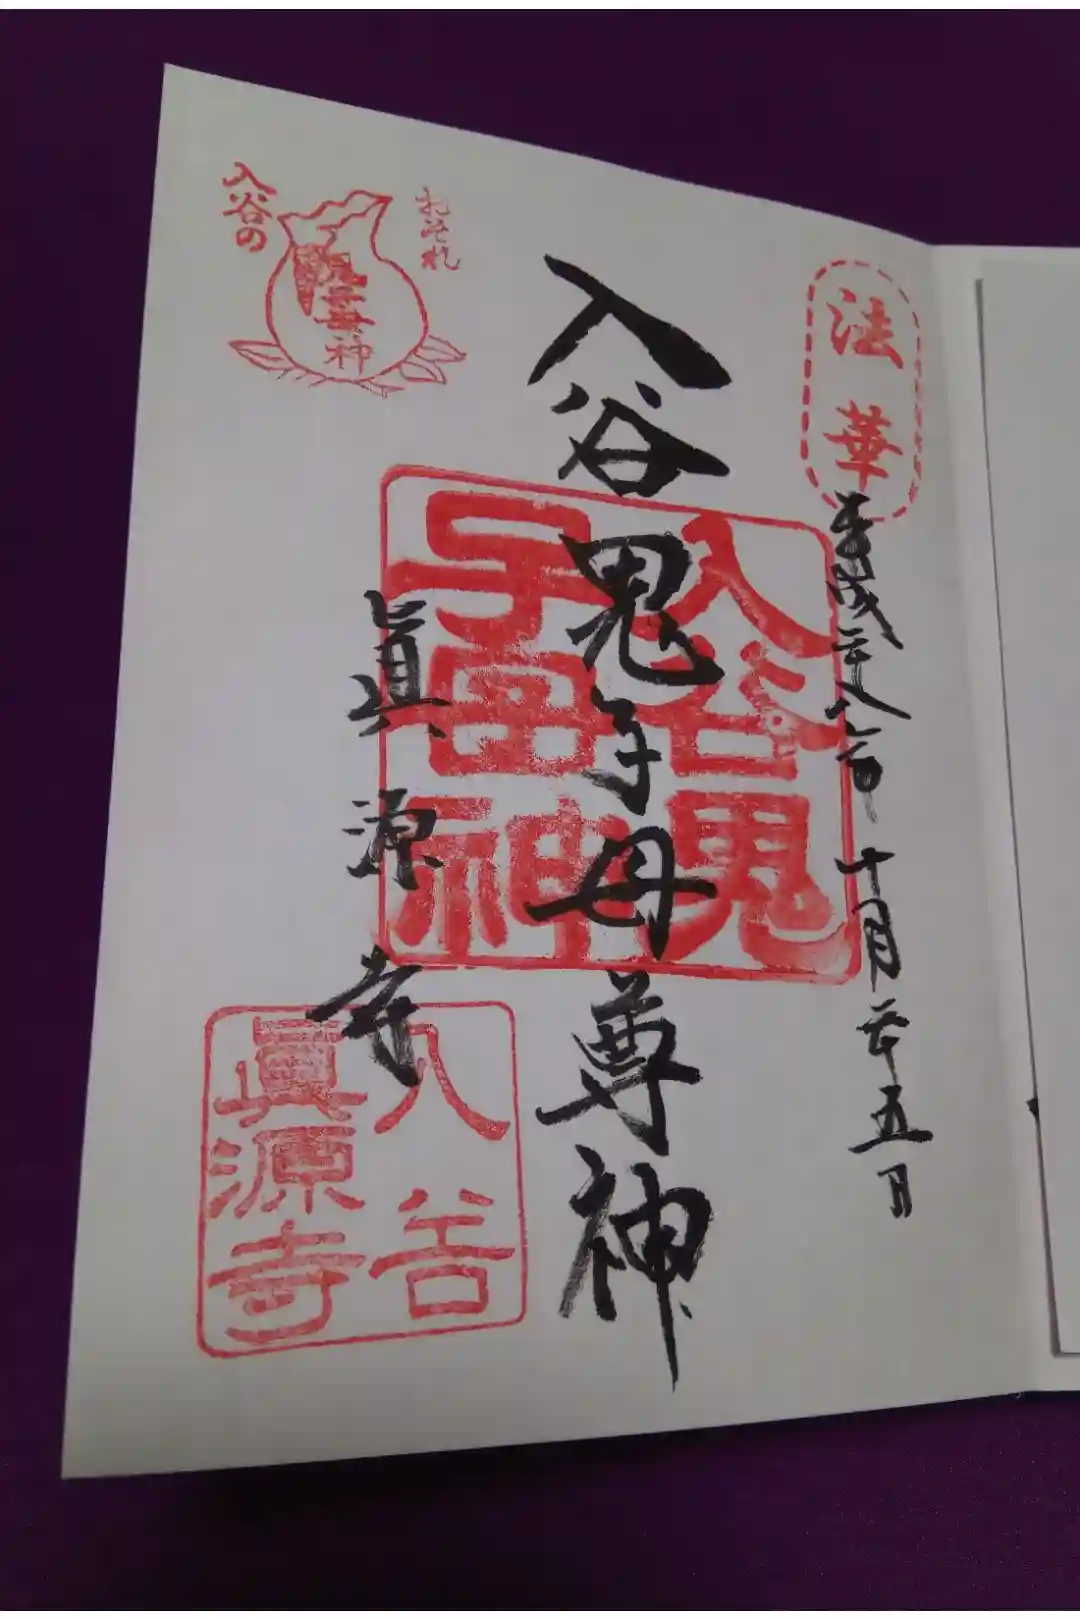 法華
平成二十八年十月二十五日
入谷鬼子母尊神
入谷鬼
子母神
眞源寺
入谷
眞源寺
おそれ
入谷の
鬼子母神